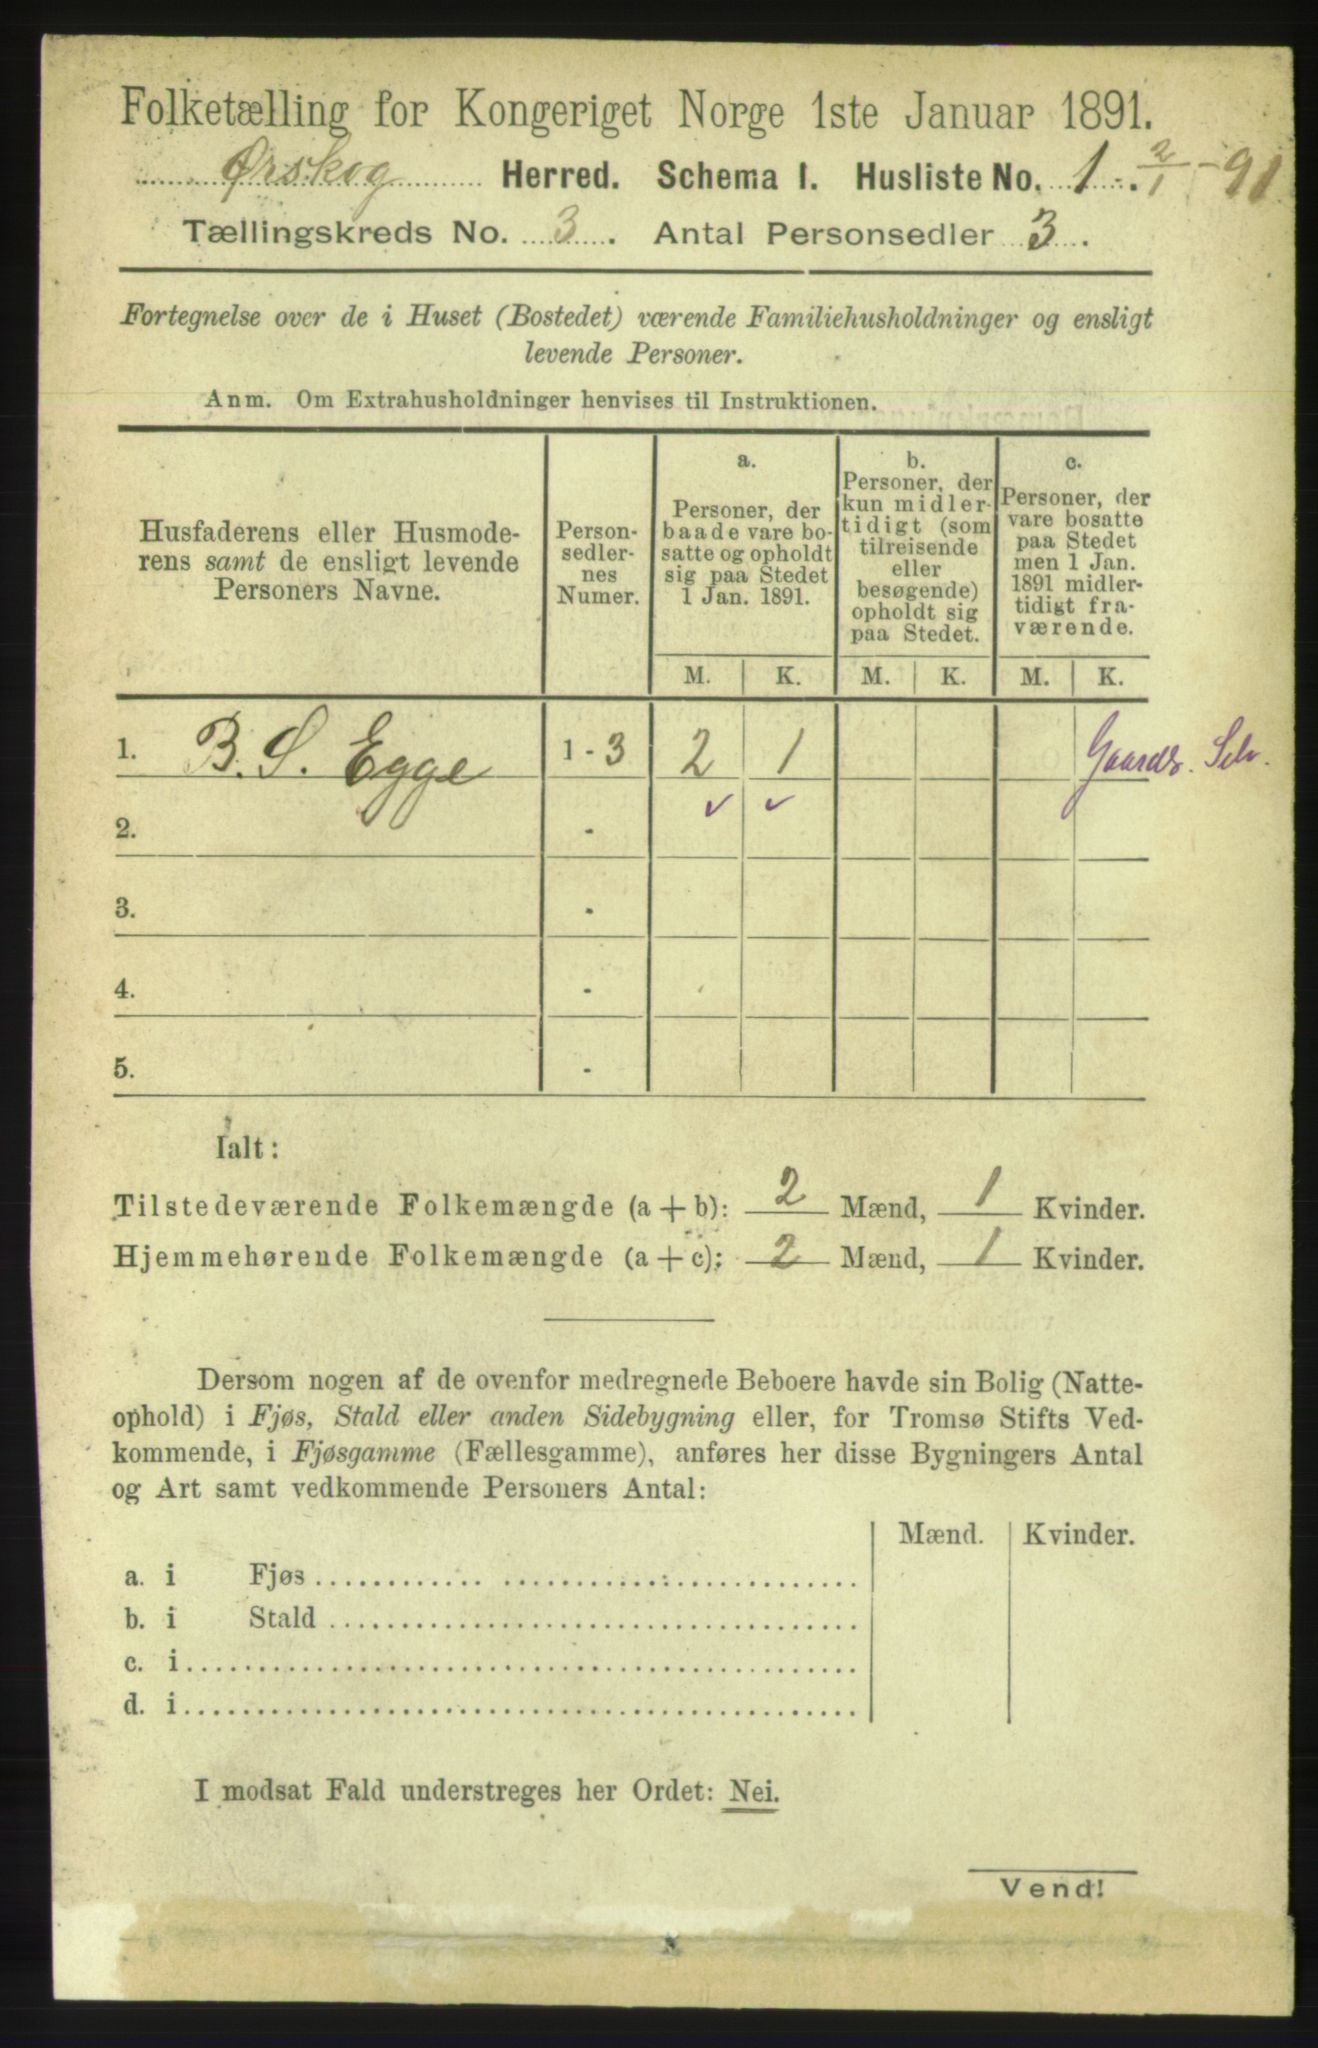 Folketælling for Kongeriget Norge 1ste Januar 1891.
Ørskog Herred. Schema I. Husliste No. 1. 2/1 - 91
Tællingskreds No. 3. Antal Personsedler 3.
Fortegnelse over de i Huset (Bostedet) værende Familiehusholdninger og ensligt
levende Personer.
Anm. Om Extrahusholdninger henvises til Instruktionen.
Husfaderens eller Husmode-
rens samt de ensligt levende
Personers Navne.
Person-
sedler-
nes
Numer.
a.
Personer, der
baade vare bo-
satte og opholdt
sig paa Stedet
1 Jan. 1891.
b.
Personer, der
kun midler-
tidigt (som
tilreisende
eller
besøgende)
opholdt sig
paa Stedet.
c.
Personer, der
vare bosatte
paa Stedet
men 1 Jan.
1891 midler-
tidigt fra-
værende.
M. K. M. K. M. K.
1. B. S. Egge 1 - 3 2 1 Gaardb. Selv.
✓ ✓
2. -
3. -
4. -
5. -
Ialt:
Tilstedeværende Folkemængde (a + b): 2 Mænd, 1 Kvinder.
Hjemmehørende Folkemængde (a + c): 2 Mænd, 1 Kvinder.
Dersom nogen af de ovenfor medregnede Beboere havde sin Bolig (Natte-
ophold) i Fjøs, Stald eller anden Sidebygning eller, for Tromsø Stifts Ved-
kommende, i Fjøsgamme (Fællesgamme), anføres her disse Bygningers Antal
og Art samt vedkommende Personers Antal:
Mænd. Kvinder.
a. i Fjøs
b. i Stald
c. i
d. i
I modsat Fald understreges her Ordet: Nei.
Vend!